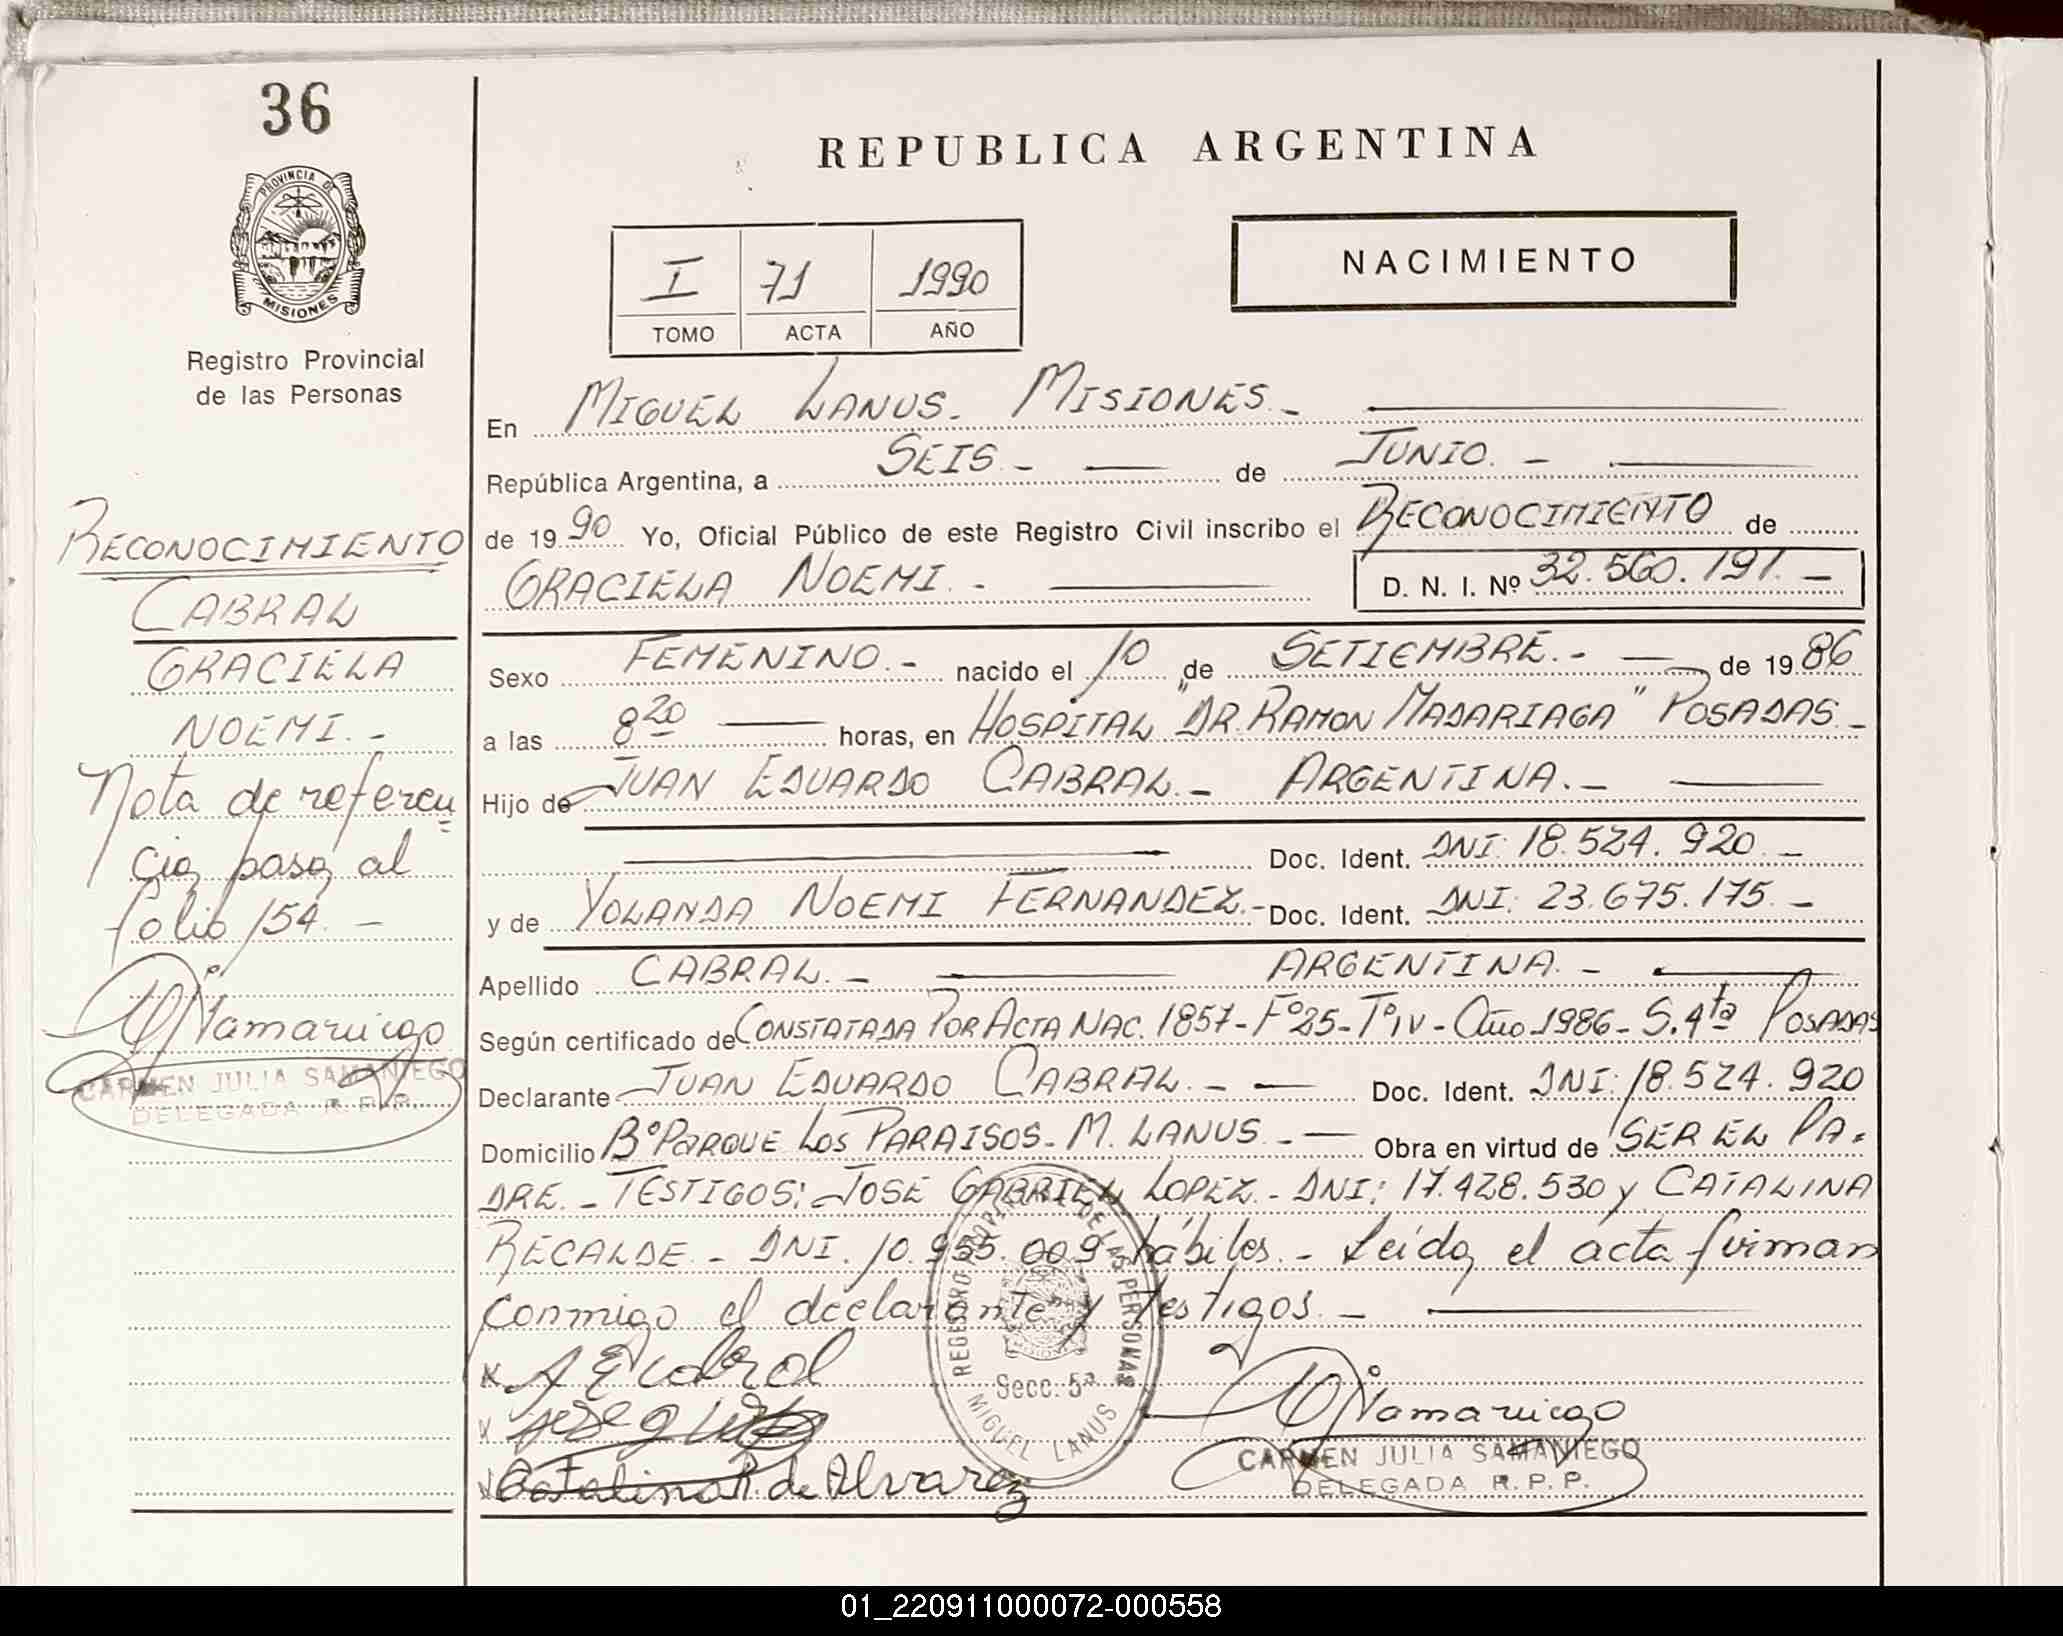 36
REPUBLICA ARGENTINA
PROVINCIA DE
MISIONES
Registro Provincial
de las Personas
I 71 1990
TOMO ACTA AÑO
NACIMIENTO
RECONOCIMIENTO
CABRAL
GRACIELA
NOEMI.-
Nota de referen
cia pasa al
folio 154.-
CARMEN JULIA SAMANIEGO
DELEGADA R.P.P.
En MIGUEL LANUS- MISIONES.-
República Argentina, a SEIS.- de JUNIO.-
de 1990 Yo, Oficial Público de este Registro Civil inscribo el RECONOCIMIENTO de
GRACIELA NOEMI.- D. N. I. Nº 32.560.191.-
Sexo FEMENINO.- nacido el 10 de SETIEMBRE.- de 1986
a las 8 20 horas, en HOSPITAL "DR. RAMON MADARIAGA" POSADAS.-
Hijo de JUAN EDUARDO CABRAL.- ARGENTINA.-
Doc. Ident. DNI: 18.524.920.-
y de YOLANDA NOEMI FERNANDEZ.- Doc. Ident. DNI: 23.675.175.-
Apellido CABRAL.- ARGENTINA.-
Según certificado de CONSTATADA POR ACTA NAC. 1857-Fº25-TºIV-Año 1986-S.4ta POSADAS
Declarante JUAN EDUARDO CABRAL.- Doc. Ident. DNI: 18.524.920
Domicilio Bº PARQUE LOS PARAISOS- M. LANUS.- Obra en virtud de SER EL PA-
DRE.- TESTIGOS: JOSE GABRIEL LOPEZ.- DNI: 17.428.530 y CATALINA
RECALDE.- DNI. 10.955.009 hábiles.- Leída el acta firman
conmigo el declarante y testigos.-
Catalina R. de Alvarez
REGISTRO PROVINCIAL DE LAS PERSONAS
MISIONES
Secc. 5ª
MIGUEL LANUS
CARMEN JULIA SAMANIEGO
DELEGADA R.P.P.
01_220911000072-000558